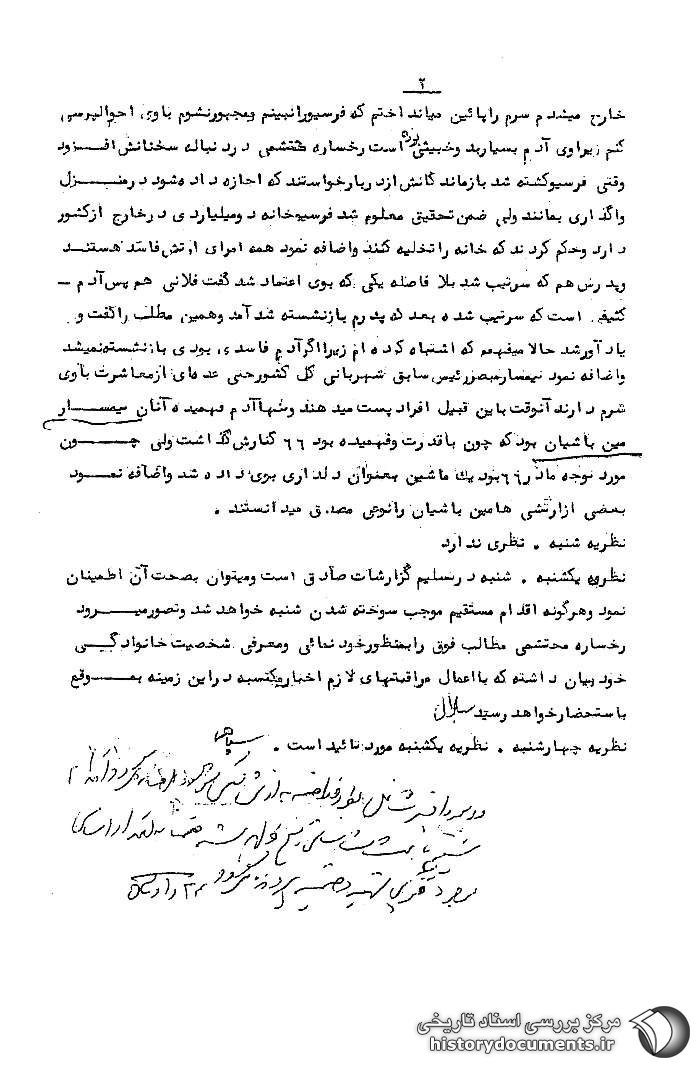 ۲
خارج میشدم سرم را پائین میانداختم که فرسیورا نبینم ومجبورنشوم باوی احوالپرسی
کنم زیراوی آدم بسیاربد وخبیثی بوده است رخساره محتشمی د رد نباله سخنانش افـزود
وقتی فرسیوکشته شد بازماند گانش ازد ربارخواستند که اجازه داد ه شود د رمنـــزل
واگذاری بمانند ولی ضمن تحقیق معلوم شد فرسیوخانه د ومیلیارد ی د رخارج ازکشور
دارد وحکم کرد ند که خانه را تخلیه کنند واضافه نمود همه امرای ارتش فاسد هستنـد
وپد رش هم که سرتیپ شد بلا فاصله یکی که بوی اعتماد شد گفت فلانی هم پس آدم ــ
کثیفی است که سرتیپ شد ه بعد که پد رم بازنشسته شد آمد وهمین مطلب راگفت و
یاد آورشد حالا میفهمم که اشتباه کرد ه ام زیرااگرآدم فاسد ی بود ی بازنشسته‌نمیشد
واضافه نمود تیمسارمبصررئیس سابق شهربانی کل کشورحتی عد ه ای ازمعاشرت باوی
شرم دارند آنوقت باین قبیل افراد پست مید هند وتنهاآدم فهمید ه آنان تیمســـار
مین باشیان بود که چون باقدرت وفهمیده بود ۶۶ کنارش گذاشت ولی چـــون
مورد توجه مادر ۶۶ بود یك ماشین بعنوان د لداری بوی داد ه شد واضافه نمـــود
بعضی ازارتشی ها مین باشیان رانوعی مصد ق مید انستند .
نظریه شنبه . نظری ندارد
نظریه یکشنبه . شنبه د رتسلیم گزارشات صادق است ومیتوان بصحت آن اطمینان
نمود وهرگونه اقدام مستقیم موجب سوخته شدن شنبه خواهد شد وتصورمیـــرود
رخساره محتشمی مطالب فوق رابمنظورخود نمائی ومعرفی شخصیت خانواد گـــی
خود بیان داشته که بااعمال مراقبتهای لازم اخبارمکتسبه د راین زمینه بمـــوقع
باستحضارخواهد رسید
نظریه چهارشنبه . نظریه یکشنبه مورد تائید است .
مرکز بررسی اسناد تاریخی
historydocuments.ir